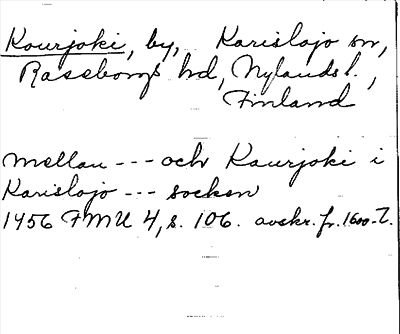 Kourjoki, by, Karislojo sn,
Raseborgs hd, Nylands l.,
Finland
mellan --- och Kaurjoki i
Karislojo --- socken
1456 FMU 4, s. 106. avskr. fr. 1600-t.